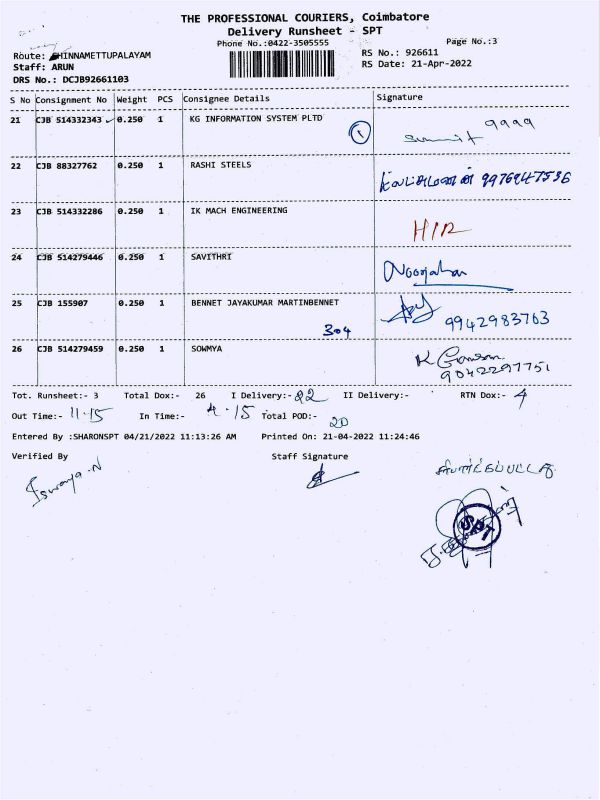 THE PROFESSIONAL COURIERS, Coimbatore
Delivery Runsheet - SPT
Phone No.:0422-3505555
Page No.:3
Route: CHINNAMETTUPALAYAM
RS No.: 926611
Staff: ARUN
RS Date: 21-Apr-2022
DRS No.: DCJB92661103
S No Consignment No Weight PCS Consignee Details Signature
21 CJB 514332343 0.250 1 KG INFORMATION SYSTEM PLTD 1 Sumit 9999
22 CJB 88327762 0.250 1 RASHI STEELS
23 CJB 514332286 0.250 1 IK MACH ENGINEERING
24 CJB 514279446 0.250 1 SAVITHRI Noorjahan
25 CJB 155907 0.250 1 BENNET JAYAKUMAR MARTINBENNET 304 9942983763
26 CJB 514279459 0.250 1 SOWMYA K 9042297751
Tot. Runsheet:- 3 Total Dox:- 26 I Delivery:- 22 II Delivery:- RTN Dox:- 4
Out Time:- 11.15 In Time:- 4.15 Total POD:- 20
Entered By :SHARONSPT 04/21/2022 11:13:26 AM Printed On: 21-04-2022 11:24:46
Verified By Staff Signature
SPT